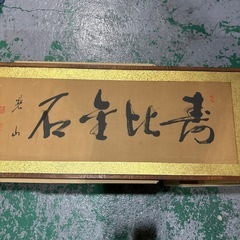 寿比金石
山